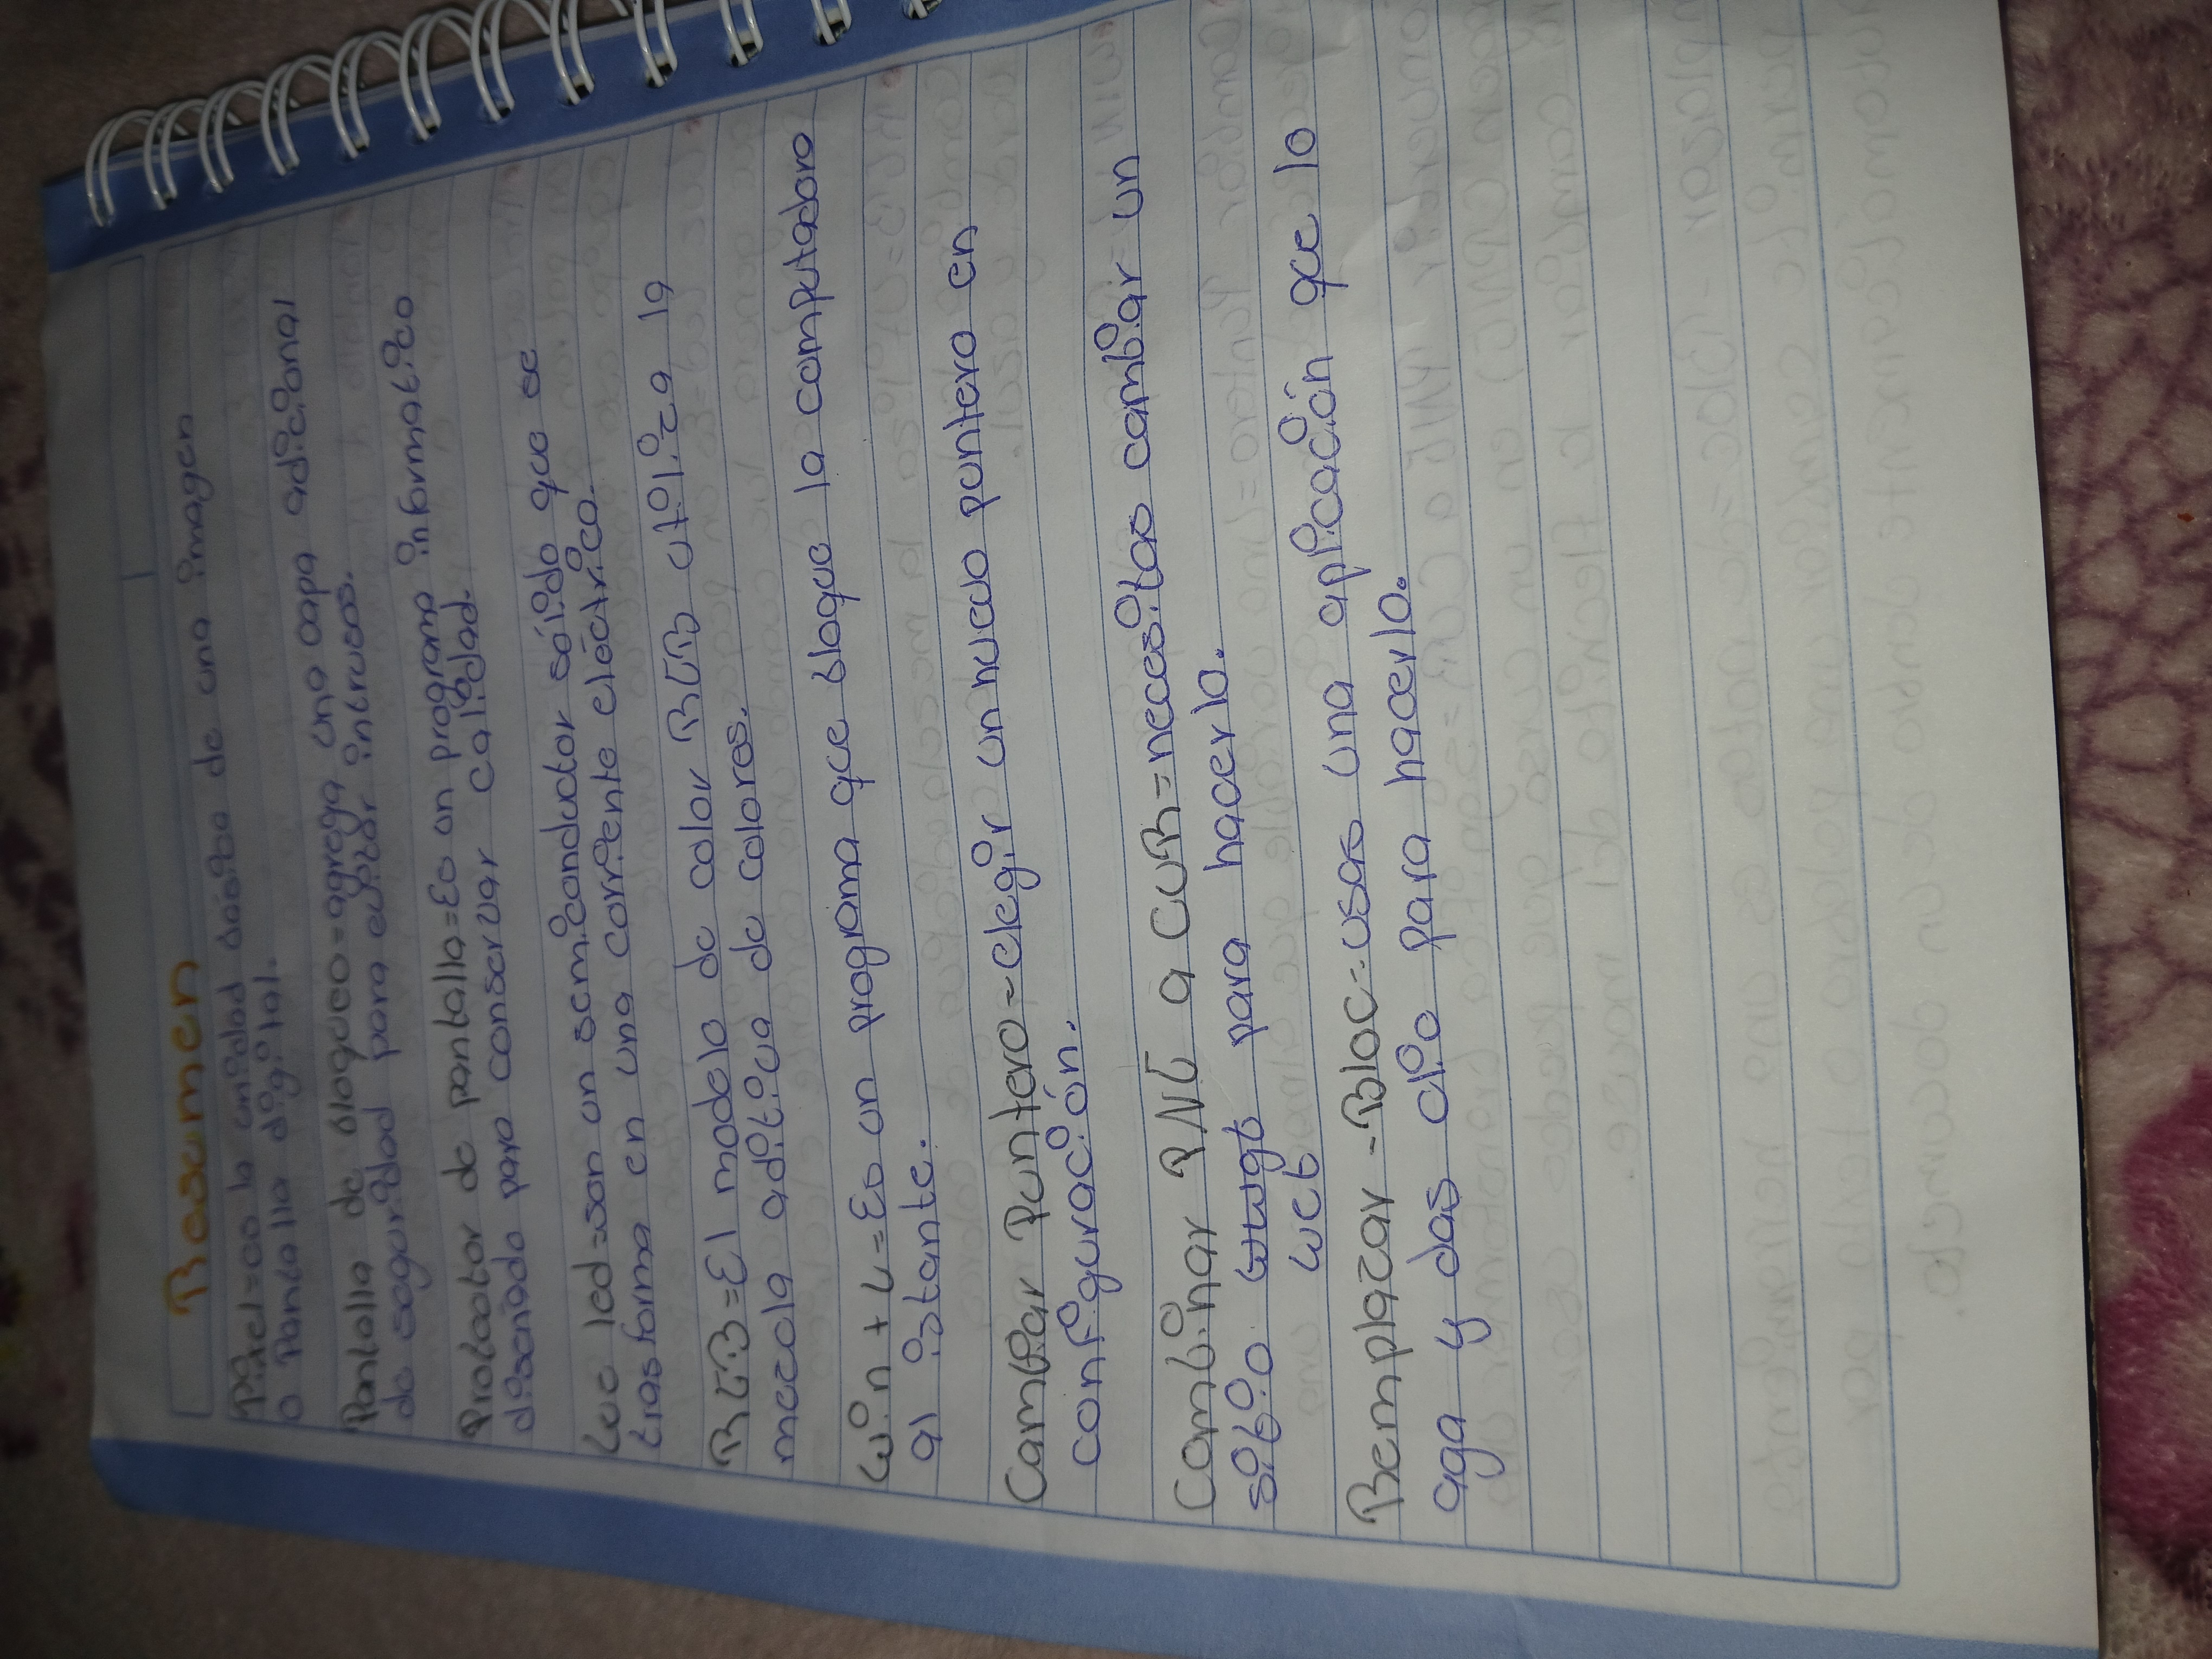 Resumen
Pixel=es la unidad básica de una imagen
o Pantalla digital.
Pantalla de bloqueo=agrega una capa adicional
de seguridad para evitar intrusos.
Protector de pantalla=Es un programa informatico
diseñado para conservar calidad.
Luc led=son un semiconductor sólido que se
trasforma en una corriente eléctrica.
RGB=El modelo de color RGB utiliza la
mezcla aditiva de colores.
Win+L=Es un programa que bloque la computadora
al istante.
Cambiar Puntero=elegir un nuevo puntero en
configuración.
Combinar PNG a CUR=necesitas cambiar un
sitio para hacerlo.
web
Remplazar-Bloc=usas una aplicación que lo
aga y das clic para hacerlo.